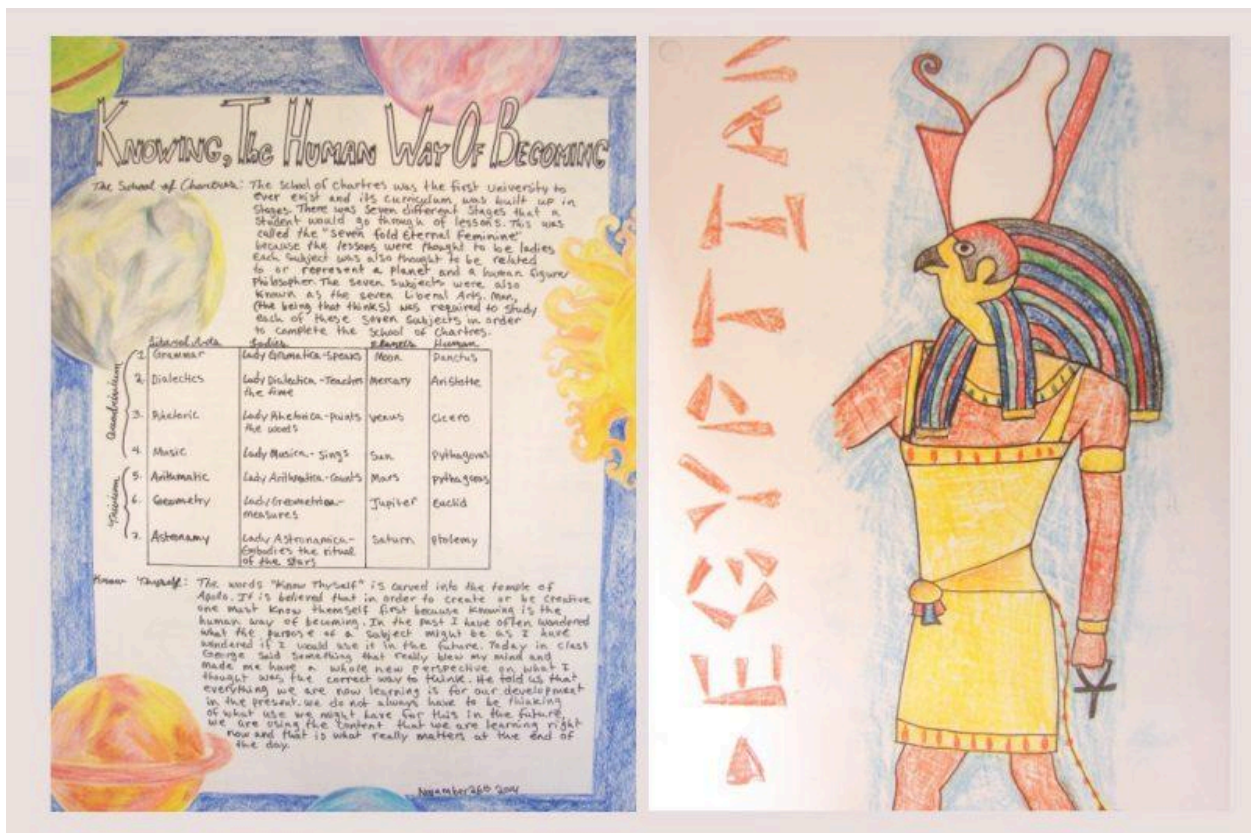 KNOWING, The HUMAN WAY OF BECOMING
The School of Chartres: The School of Chartres was the first University to
ever exist and its curriculum was built up in
Stages. There was Seven different Stages that a
Student would go through of lessons. This was
called the "Seven fold Eternal Feminine"
because the lessons were thought to be ladies
Each Subject was also thought to be related
to or represent a planet and a human figure/
Philosopher. The seven subjects were also
known as the seven Liberal Arts. Man,
(the being that thinks) was required to study
each of these seven subjects in order
to complete the School of Chartres.
Liberal Arts Ladies Planets Human
Quadrivium
1. Grammar Lady Gramatica-Speaks Moon Donctus
2. Dialectics Lady Dialectica-Teaches the time Mercury Aristotle
3. Rhetoric Lady Rhetorica-paints the words Venus Cicero
4. Music Lady Musica-Sings Sun Pythagoras
Trivium
5. Arithmatic Lady Arithmatica-Counts Mars Pythagoras
6. Geometry Lady Geometria-measures Jupiter Euclid
7. Astronamy Lady Astronamica-Embodies the ritual of the stars Saturn Ptolemy
Know Thyself: The words "Know Thyself" is carved into the temple of
Apolo. It is believed that in order to create or be creative
one must know themself first because knowing is the
human way of becoming. In the past I have often wondered
what the purpose of a subject might be as I have
wondered if I would use it in the future. Today in class
George Said something that really blew my mind and
made me have a whole new perspective on what I
thought was the correct way to think. He told us that
everything we are now learning is for our development
in the present. we do not always have to be thinking
of what use we might have for this in the future.
we are using the content that we are learning right
now and that is what really matters at the end of
the day.
November 26th 2014
EGYPTIAN